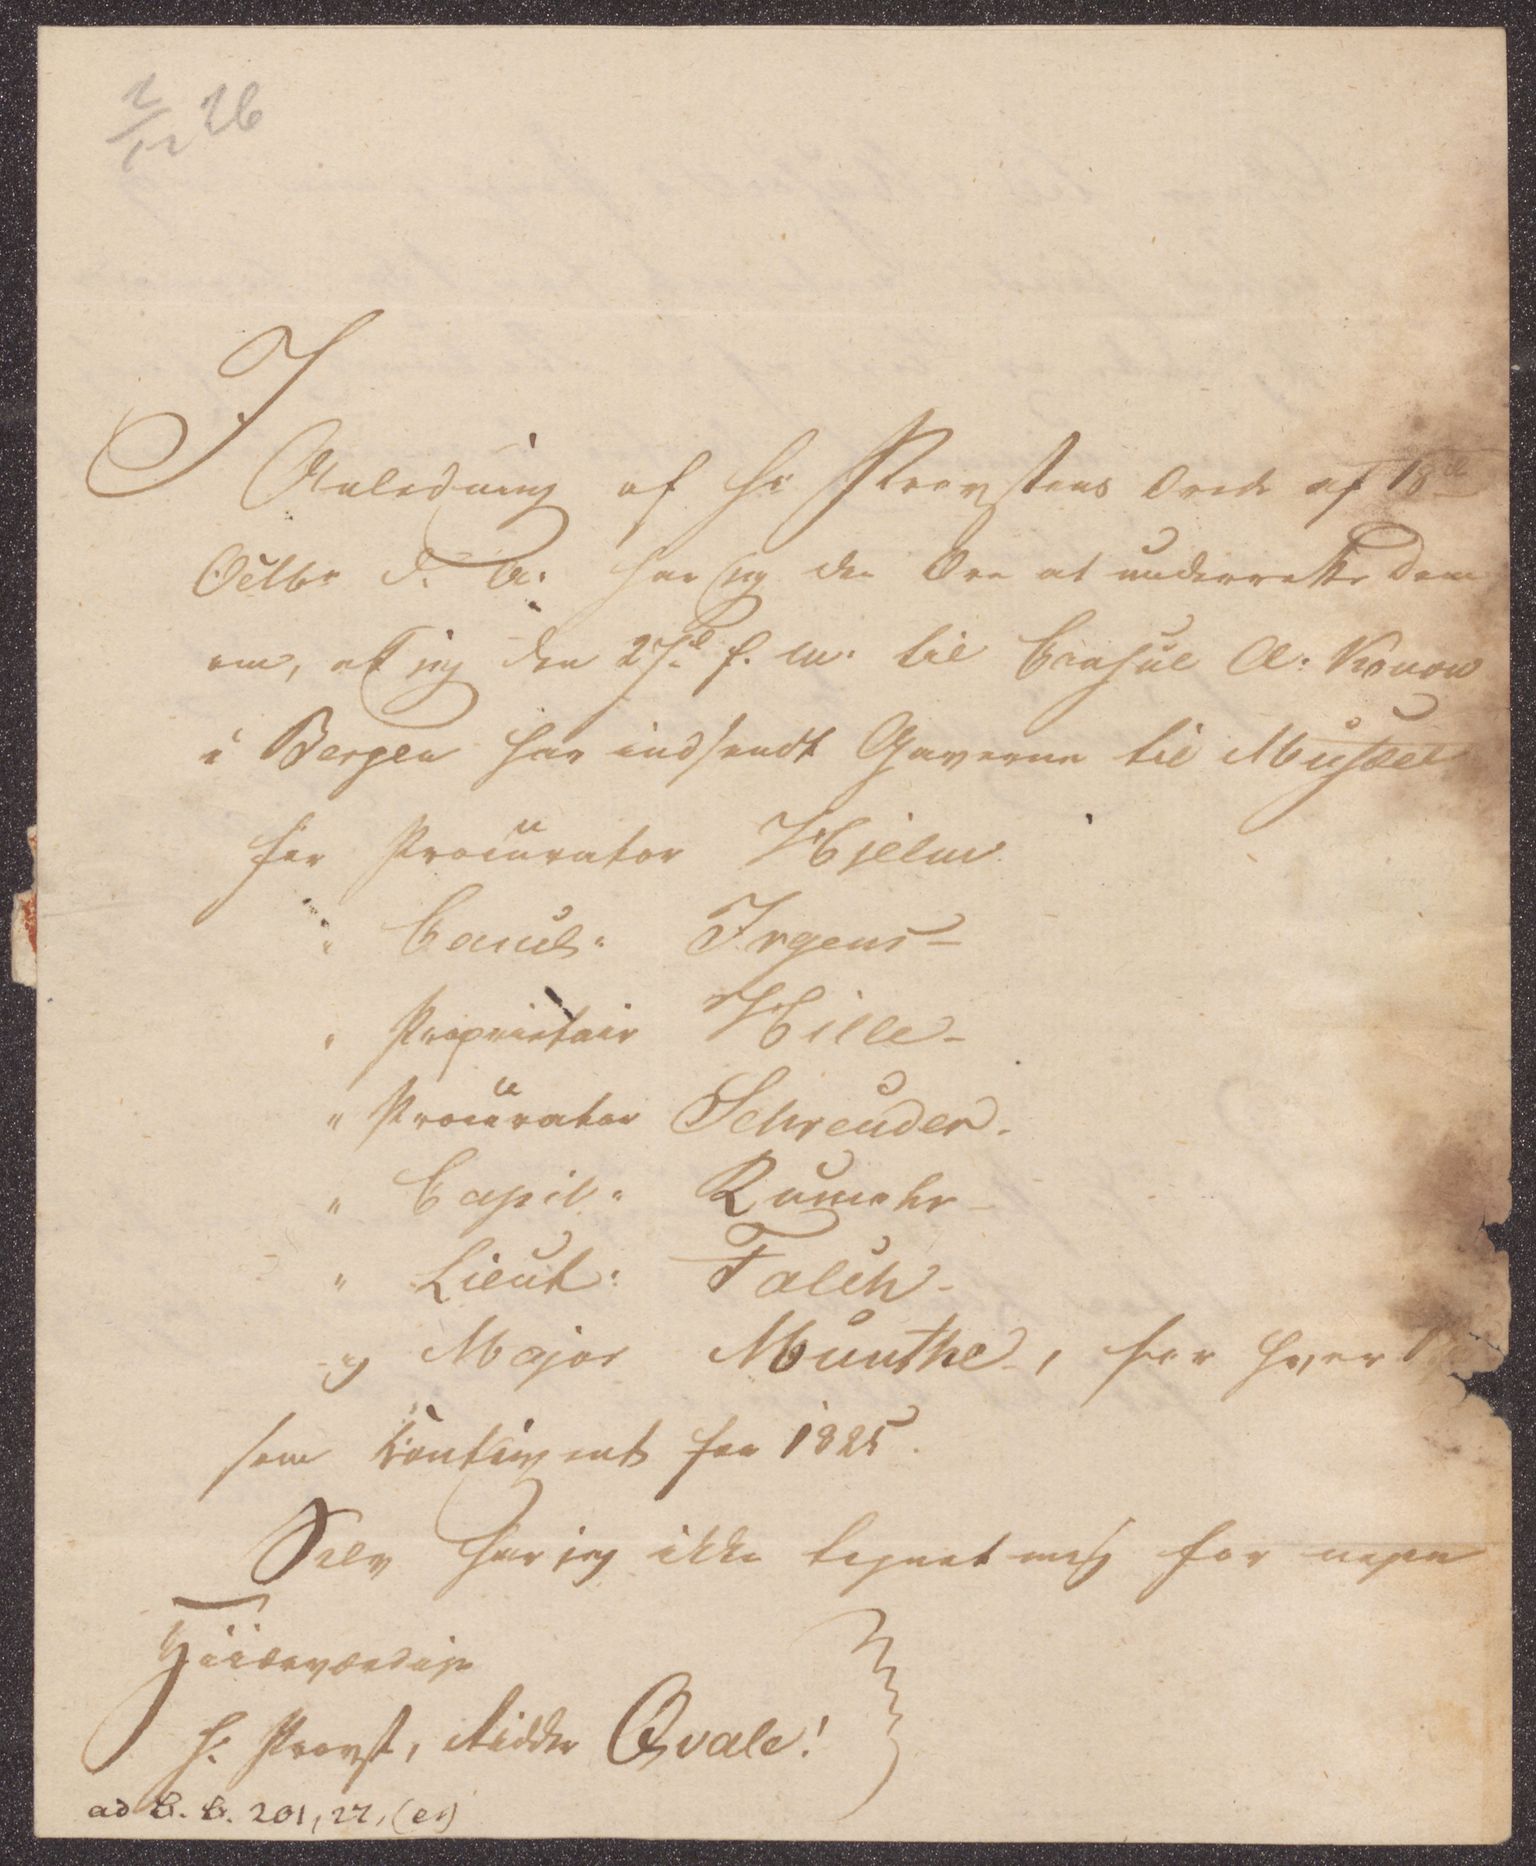 2/12 26
I
Anledning af Hr Provstens Ordre af 18de
Octbr d. A: har jeg den Ære at underrette Dem
om, at jeg den 27d f. M: til Consul A: Konow
i Bergen har indsendt Gaverne til Museet
for Procurator Hjelm
" Cancel: Irgens –
" Proprietair Hille –
" Procurator Schreuder.
" Capit: Rumohr –
" Lieut: Falch –
og Major Munthe, for hver
som Contingent for 1825.
Selv har jeg ikke tegnet mig for nogen
Høiærværdige
Hr Provst, Ridder Qvale!
ad B. B. 201, 27, (er)